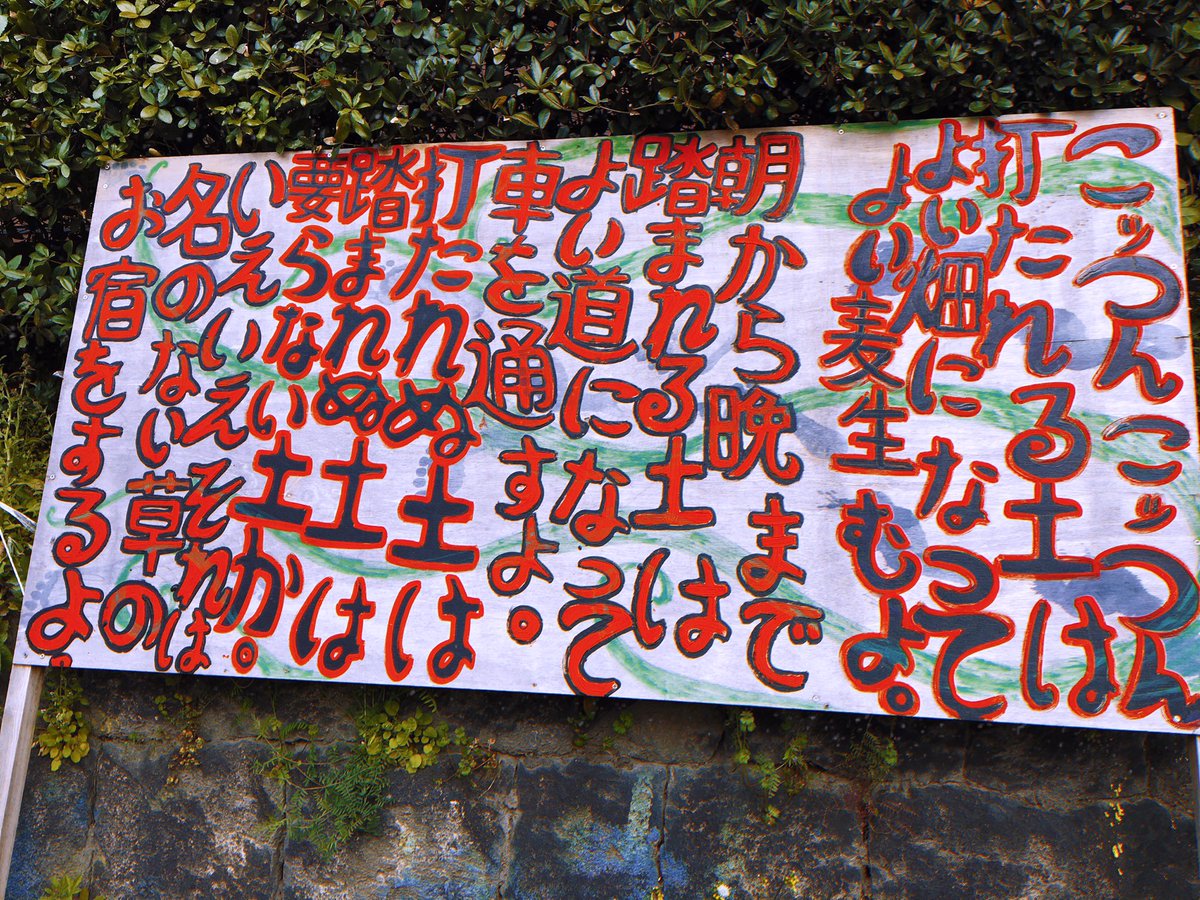 こッつんこッつん
打たれる土は
よい畑になって
よい麦生むよ。
朝から晩まで
踏まれる土は
よい道になって
車を通すよ。
打たれぬ土は
踏まれぬ土は
要らない土か。
いえいえそれは
名のない草の
お宿をするよ